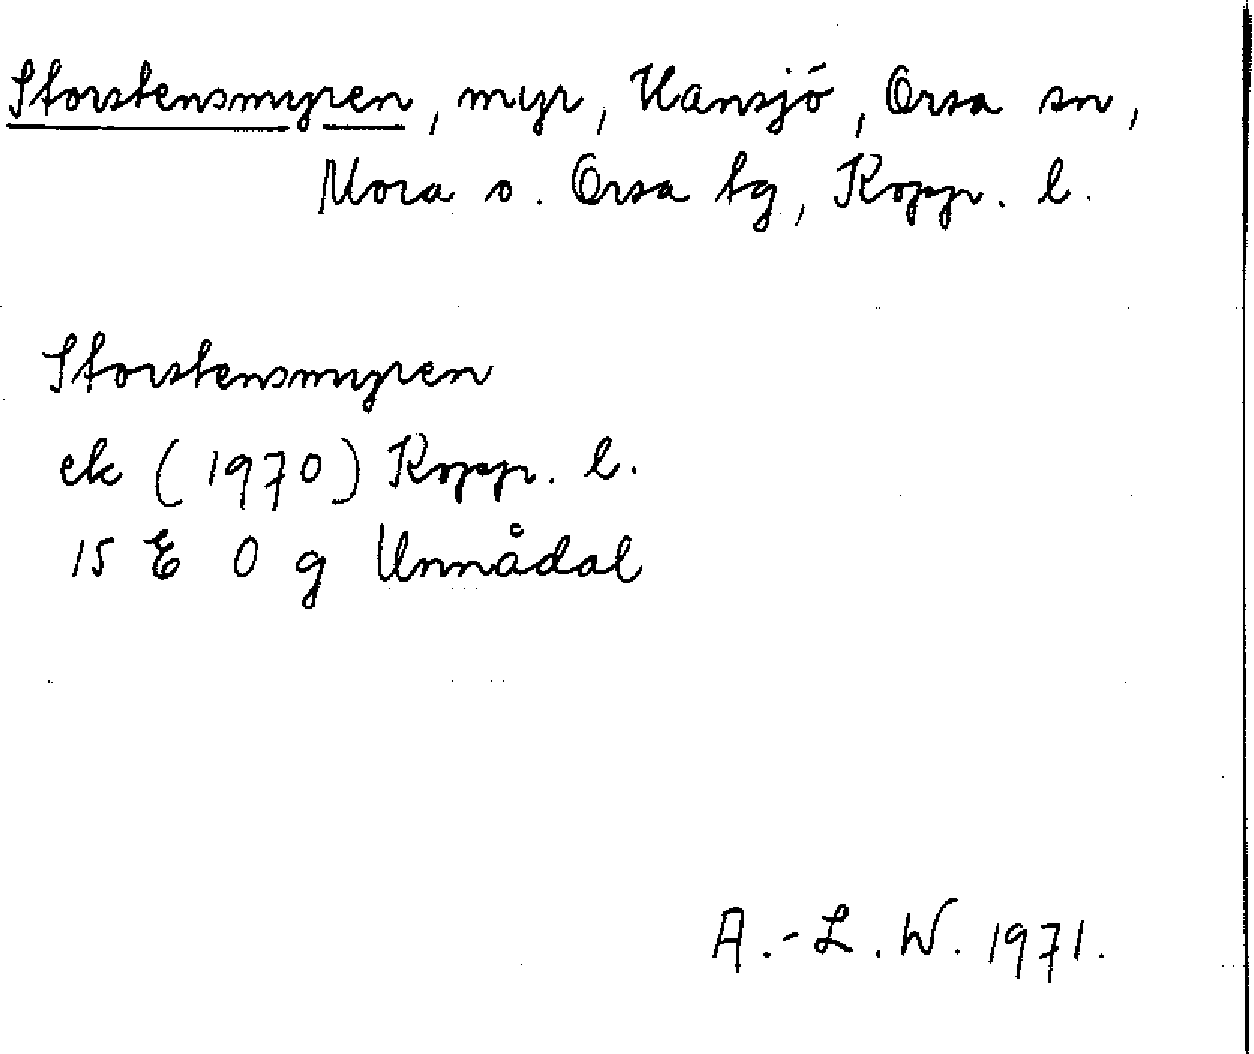 Storstensmyren, myr, Hansjö, Orsa sn,
Mora o. Orsa tg, Kopp. l.
Storstensmyren
ek (1970) Kopp. l.
15 E 0 g Unnådal
A.-L. W. 1971.